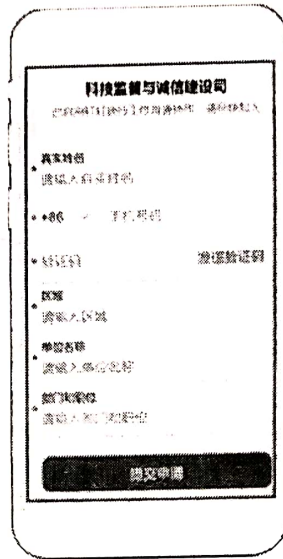 科技监督与诚信建设司
* 真实姓名
请输入真实姓名
* +86 手机号码
* 验证码 发送验证码
* 区域
请输入区域
* 单位名称
请输入单位名称
* 部门和职位
请输入部门和职位
提交申请